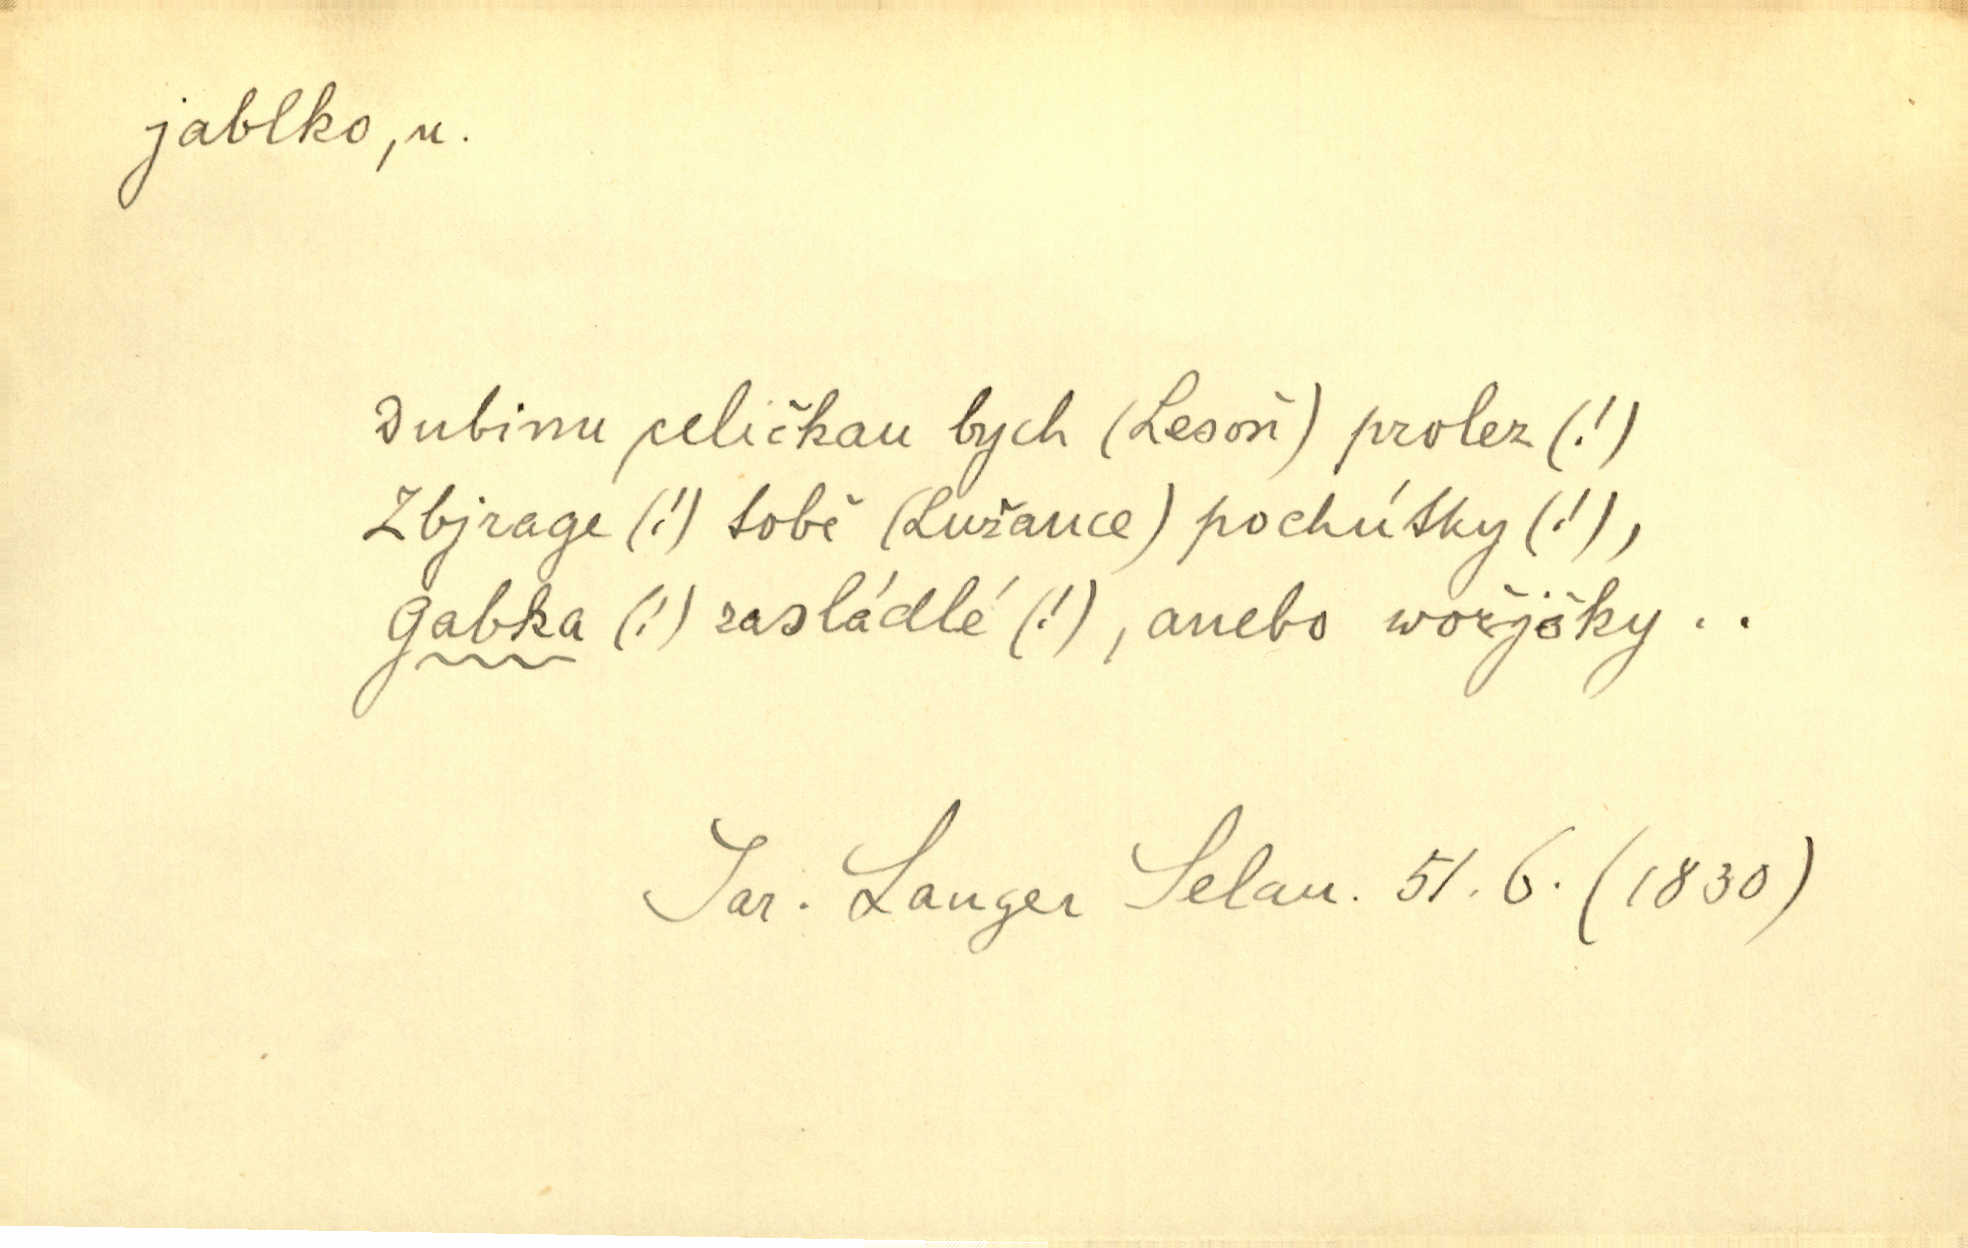 jablko, n.
Dubinu celičkau bych (Lesoň) prolez (!)
Zbjrage (!) tobě (Lužance) pochútky (!),
Gabka (!) zasládlé (!), anebo wořjšky ..
Jar. Langer Selan. 51. 6. (1830)